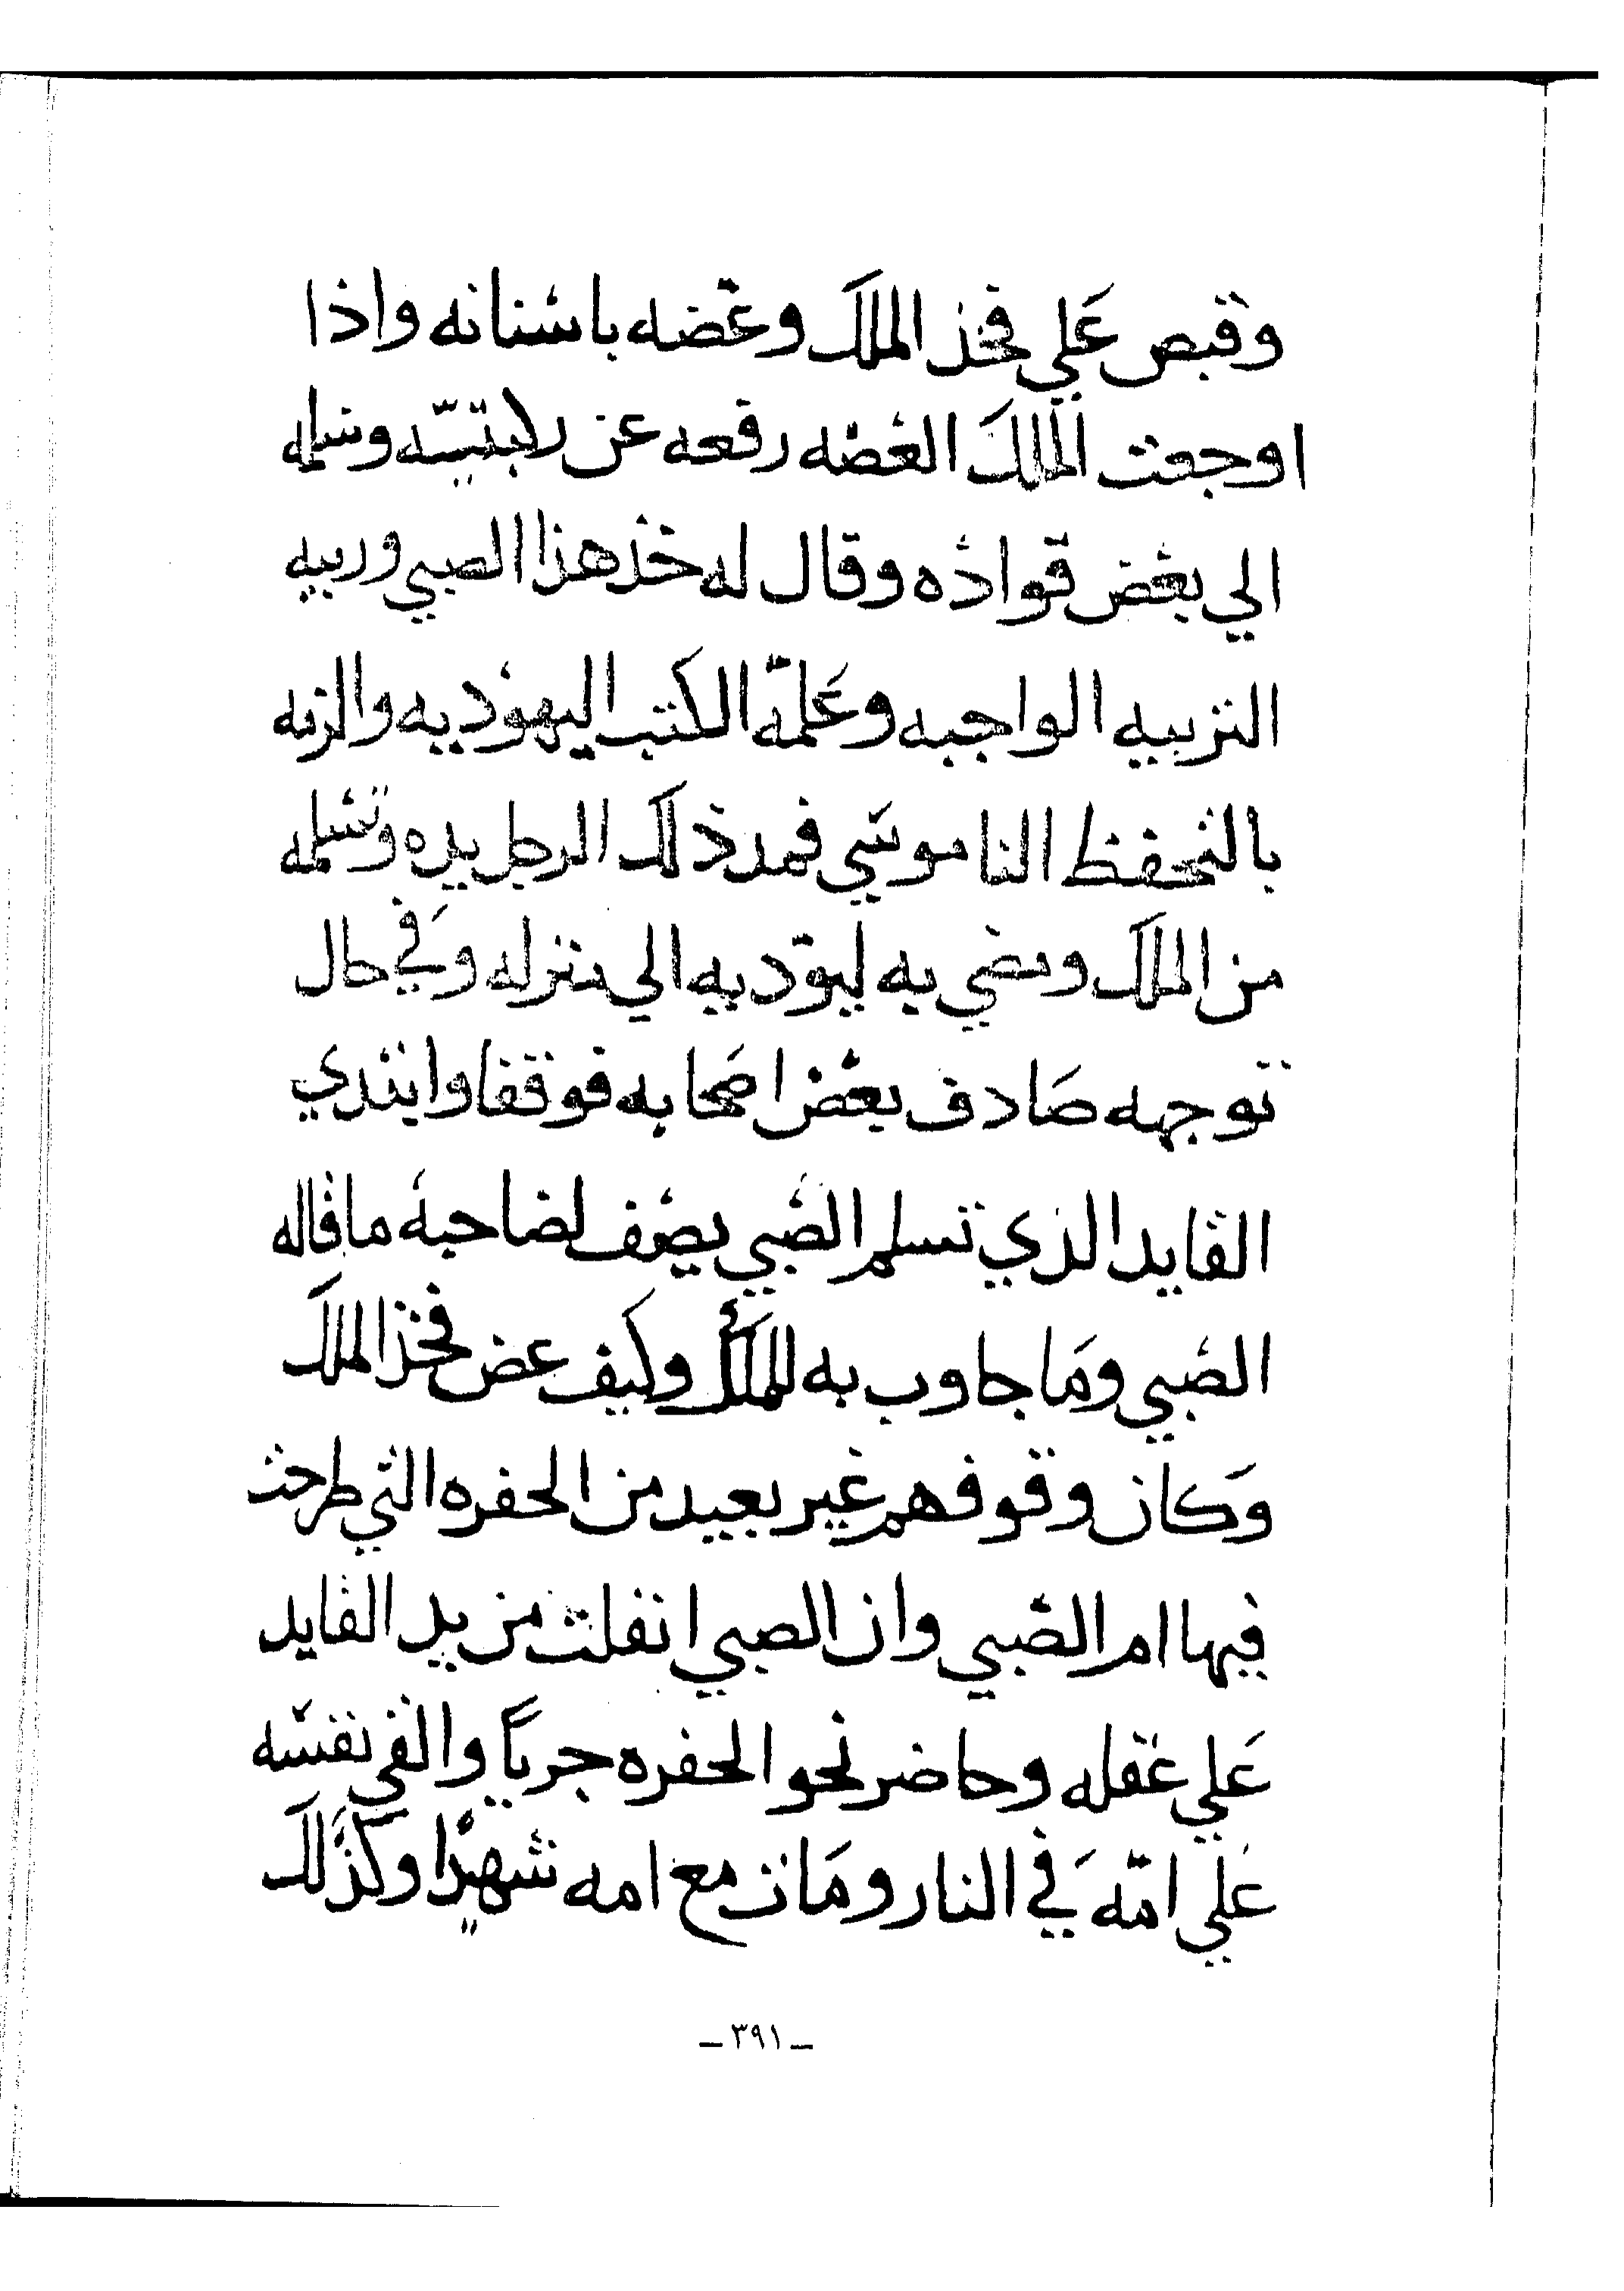 وقبض علي فخذ الملك وعضه باسنانه واذا
اوجعت الملك العضه رفعه عن ركبتيه وسلمه
الي بعض قواده وقال له خذ هذا الصبي وربيه
التربيه الواجبه وعلمه الكتب اليهوديه والزمه
بالتحفظ الناموسي فمد ذلك الرجل يده وتسلمه
من الملك ومضي به ليوديه الي منزله وفي حال
توجهه صادف بعض اصحابه فوقفا وابتدي
القايد الذي تسلم الصبي يصف لصاحبه ما قاله
الصبي وما جاوب به للملك وكيف عض فخذ الملك
وكان وقوفهم غير بعيد من الحفره التي طرحت
فيها ام الصبي وان الصبي انفلت من يد القايد
علي غفله وحاضر نحو الحفره جريا والقي نفسه
علي امه في النار ومات مع امه شهيدا وكذلك
ـ ٣٩١ ـ